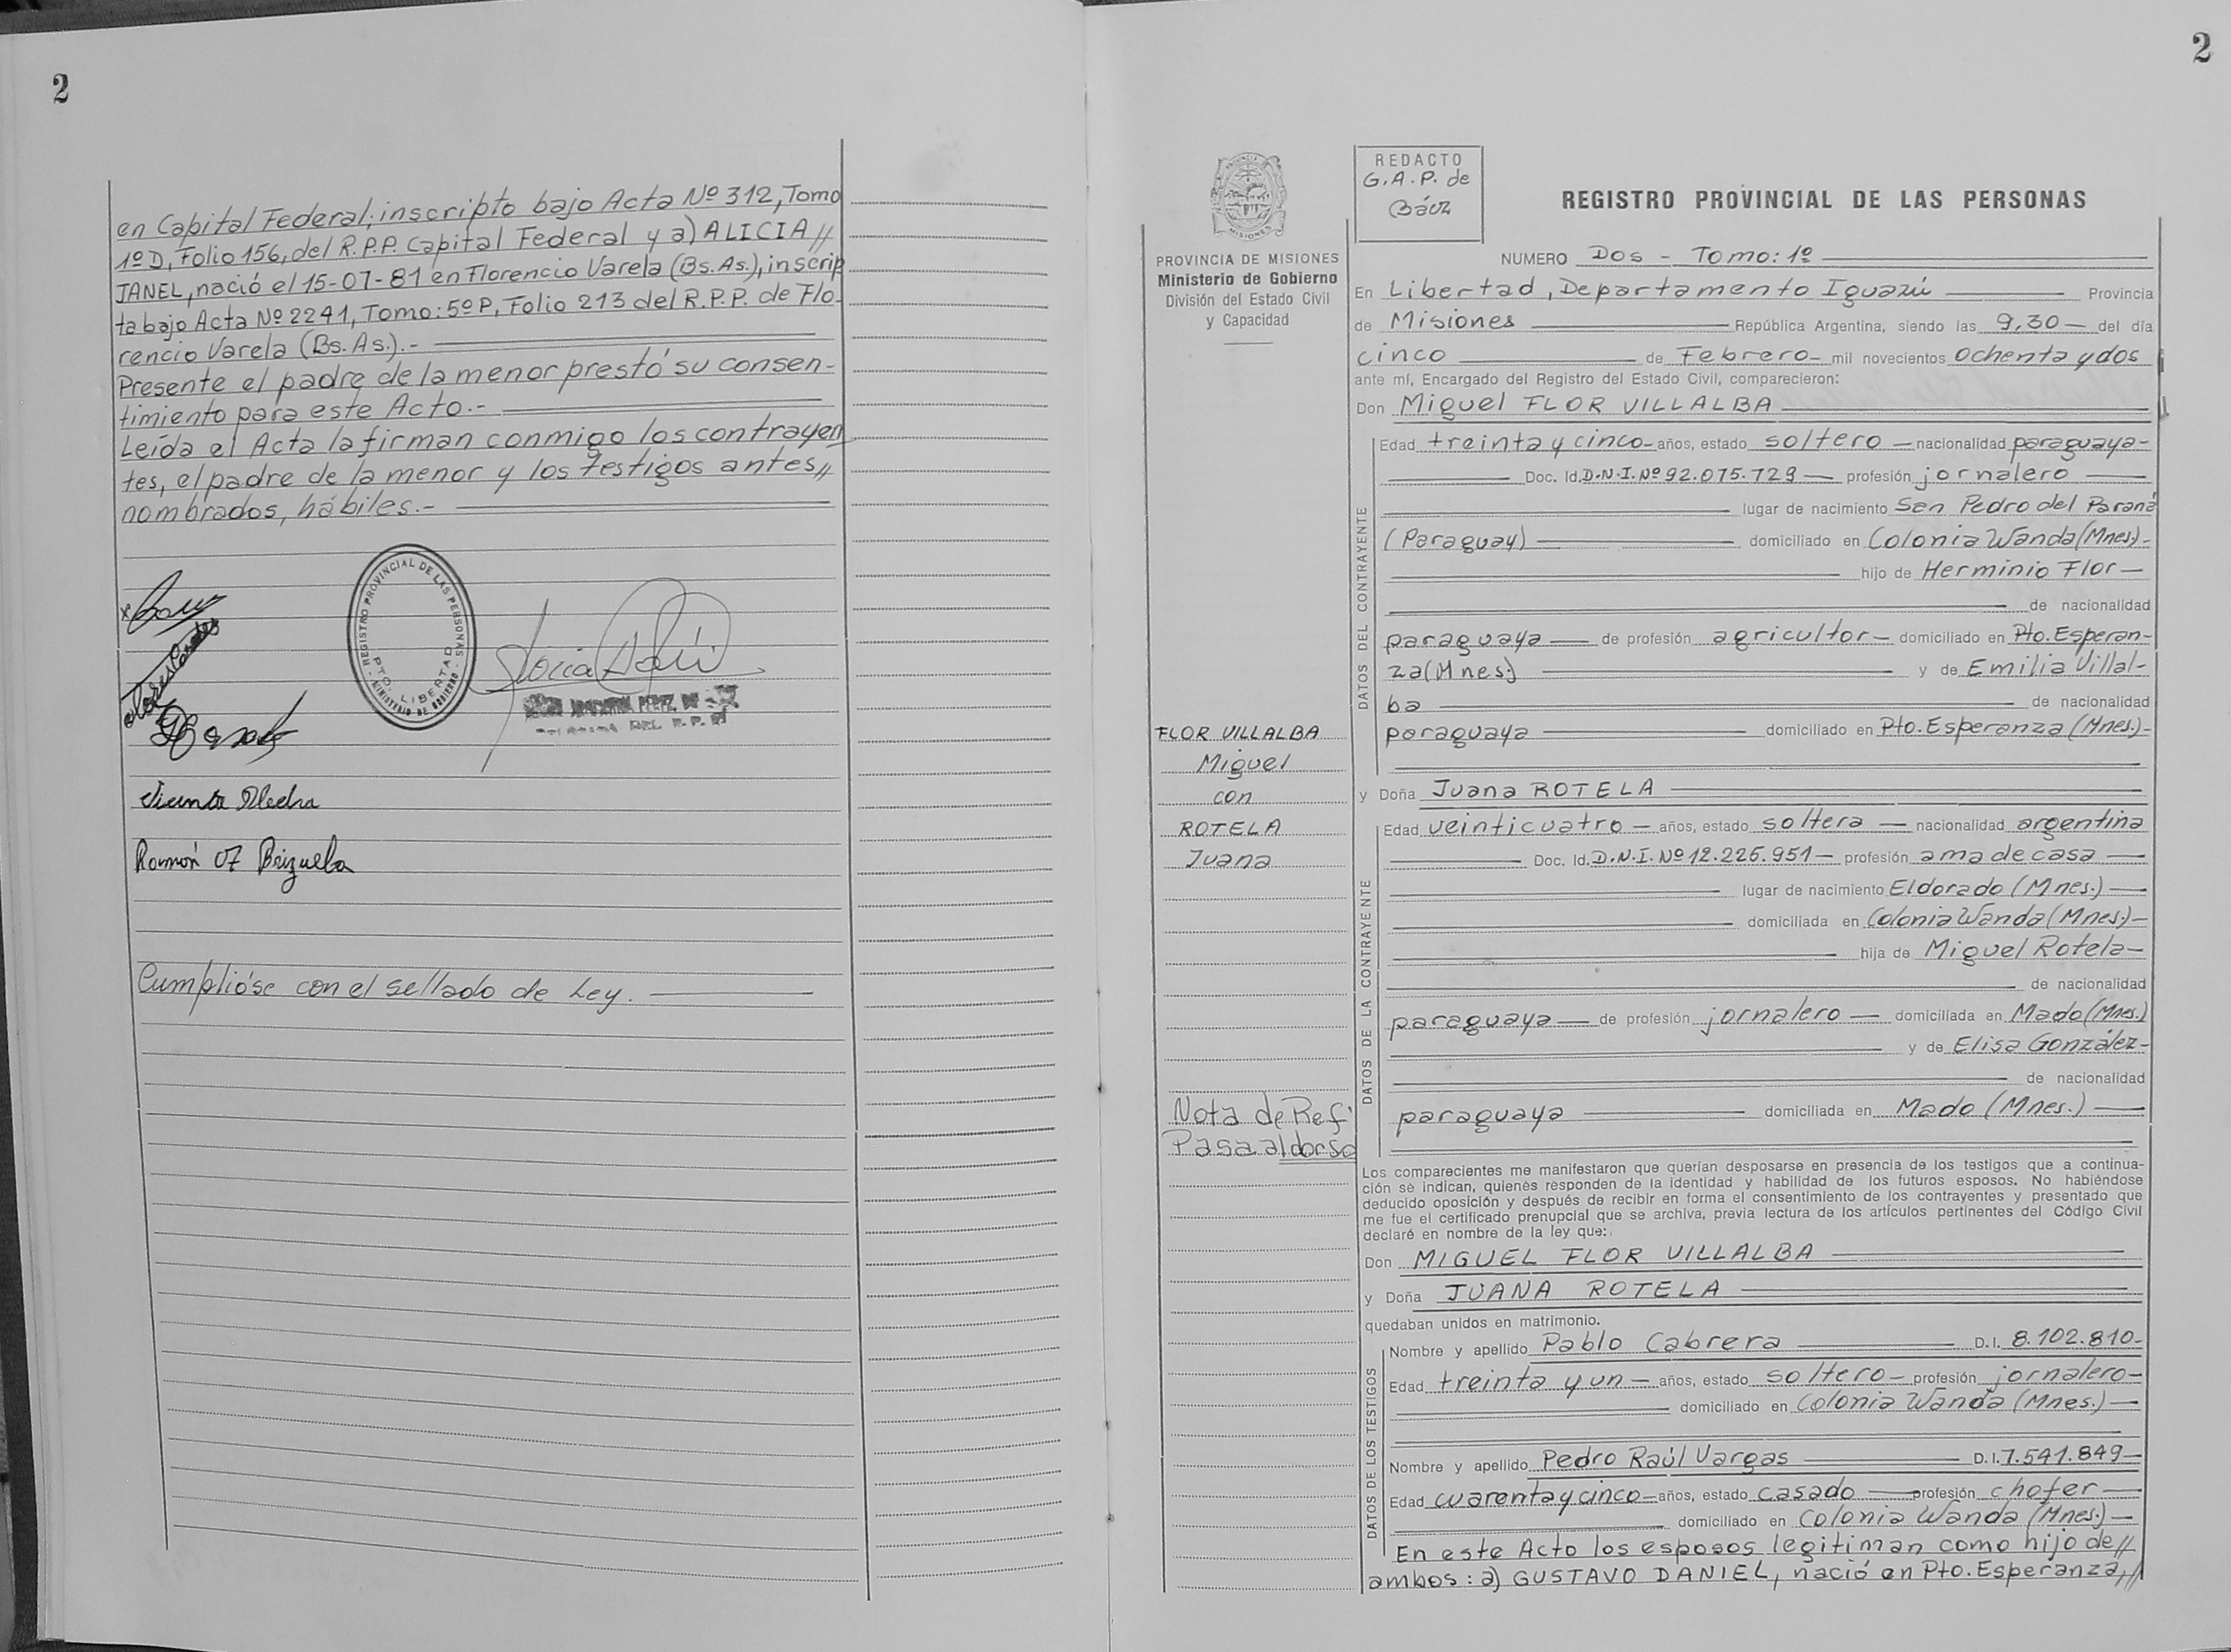 2
en Capital Federal; inscripto bajo Acta Nº 312, Tomo
1º D, Folio 156, del R.P.P. Capital Federal y a) ALICIA //
JANEL, nació el 15-07-81 en Florencio Varela (Bs. As.), inscrip
ta bajo Acta Nº 2241, Tomo: 5º P, Folio 213 del R.P.P. de Flo-
rencio Varela (Bs. As.).-
Presente el padre de la menor prestó su consen-
timiento para este Acto.-
Leída el Acta la firman conmigo los contrayen
tes, el padre de la menor y los testigos antes //
nombrados, hábiles.-
REGISTRO PROVINCIAL DE LAS PERSONAS
PTO. LIBERTAD
MINISTERIO DE GOBIERNO
PEREZ DE
DEL R. P. P.
Ramón Brizuela
Cumplióse con el sellado de Ley.
2
PROVINCIA DE MISIONES
Ministerio de Gobierno
División del Estado Civil
y Capacidad
FLOR VILLALBA
Miguel
con
ROTELA
Juana
Nota de Ref.
Pasa al dorso
REDACTO
G.A.P. de
Báez
REGISTRO PROVINCIAL DE LAS PERSONAS
NUMERO Dos - Tomo: 1º
En Libertad, Departamento Iguazú Provincia
de Misiones República Argentina, siendo las 9,30 del día
cinco de Febrero mil novecientos ochenta y dos
ante mí, Encargado del Registro del Estado Civil, comparecieron:
Don Miguel FLOR VILLALBA
DATOS DEL CONTRAYENTE
Edad treinta y cinco años, estado soltero nacionalidad paraguaya
Doc. Id. D.N.I. Nº 92.075.729 profesión jornalero
lugar de nacimiento San Pedro del Paraná
(Paraguay) domiciliado en Colonia Wanda (Mnes.)
hijo de Herminio Flor
de nacionalidad
paraguaya de profesión agricultor domiciliado en Pto. Esperan-
za (Mnes.) y de Emilia Villal-
ba de nacionalidad
paraguaya domiciliado en Pto. Esperanza (Mnes.)
y Doña Juana ROTELA
DATOS DE LA CONTRAYENTE
Edad veinticuatro años, estado soltera nacionalidad argentina
Doc. Id. D.N.I. Nº 12.226.951 profesión ama de casa
lugar de nacimiento Eldorado (Mnes.)
domiciliada en Colonia Wanda (Mnes.)
hija de Miguel Rotela
de nacionalidad
paraguaya de profesión jornalero domiciliada en Mado (Mnes.)
y de Elisa González
de nacionalidad
paraguaya domiciliada en Mado (Mnes.)
Los comparecientes me manifestaron que querían desposarse en presencia de los testigos que a continua-
ción se indican, quienes responden de la identidad y habilidad de los futuros esposos. No habiéndose
deducido oposición y después de recibir en forma el consentimiento de los contrayentes y presentado que
me fue el certificado prenupcial que se archiva, previa lectura de los artículos pertinentes del Código Civil
declaré en nombre de la ley que:
Don MIGUEL FLOR VILLALBA
y Doña JUANA ROTELA
quedaban unidos en matrimonio.
DATOS DE LOS TESTIGOS
Nombre y apellido Pablo Cabrera D.I. 8.102.810
Edad treinta y un años, estado soltero profesión jornalero
domiciliado en Colonia Wanda (Mnes.)
Nombre y apellido Pedro Raúl Vargas D.I. 7.541.849
Edad cuarenta y cinco años, estado casado profesión chofer
domiciliado en Colonia Wanda (Mnes.)
En este Acto los esposos legitiman como hijo de //
ambos: a) GUSTAVO DANIEL, nació en Pto. Esperanza, //